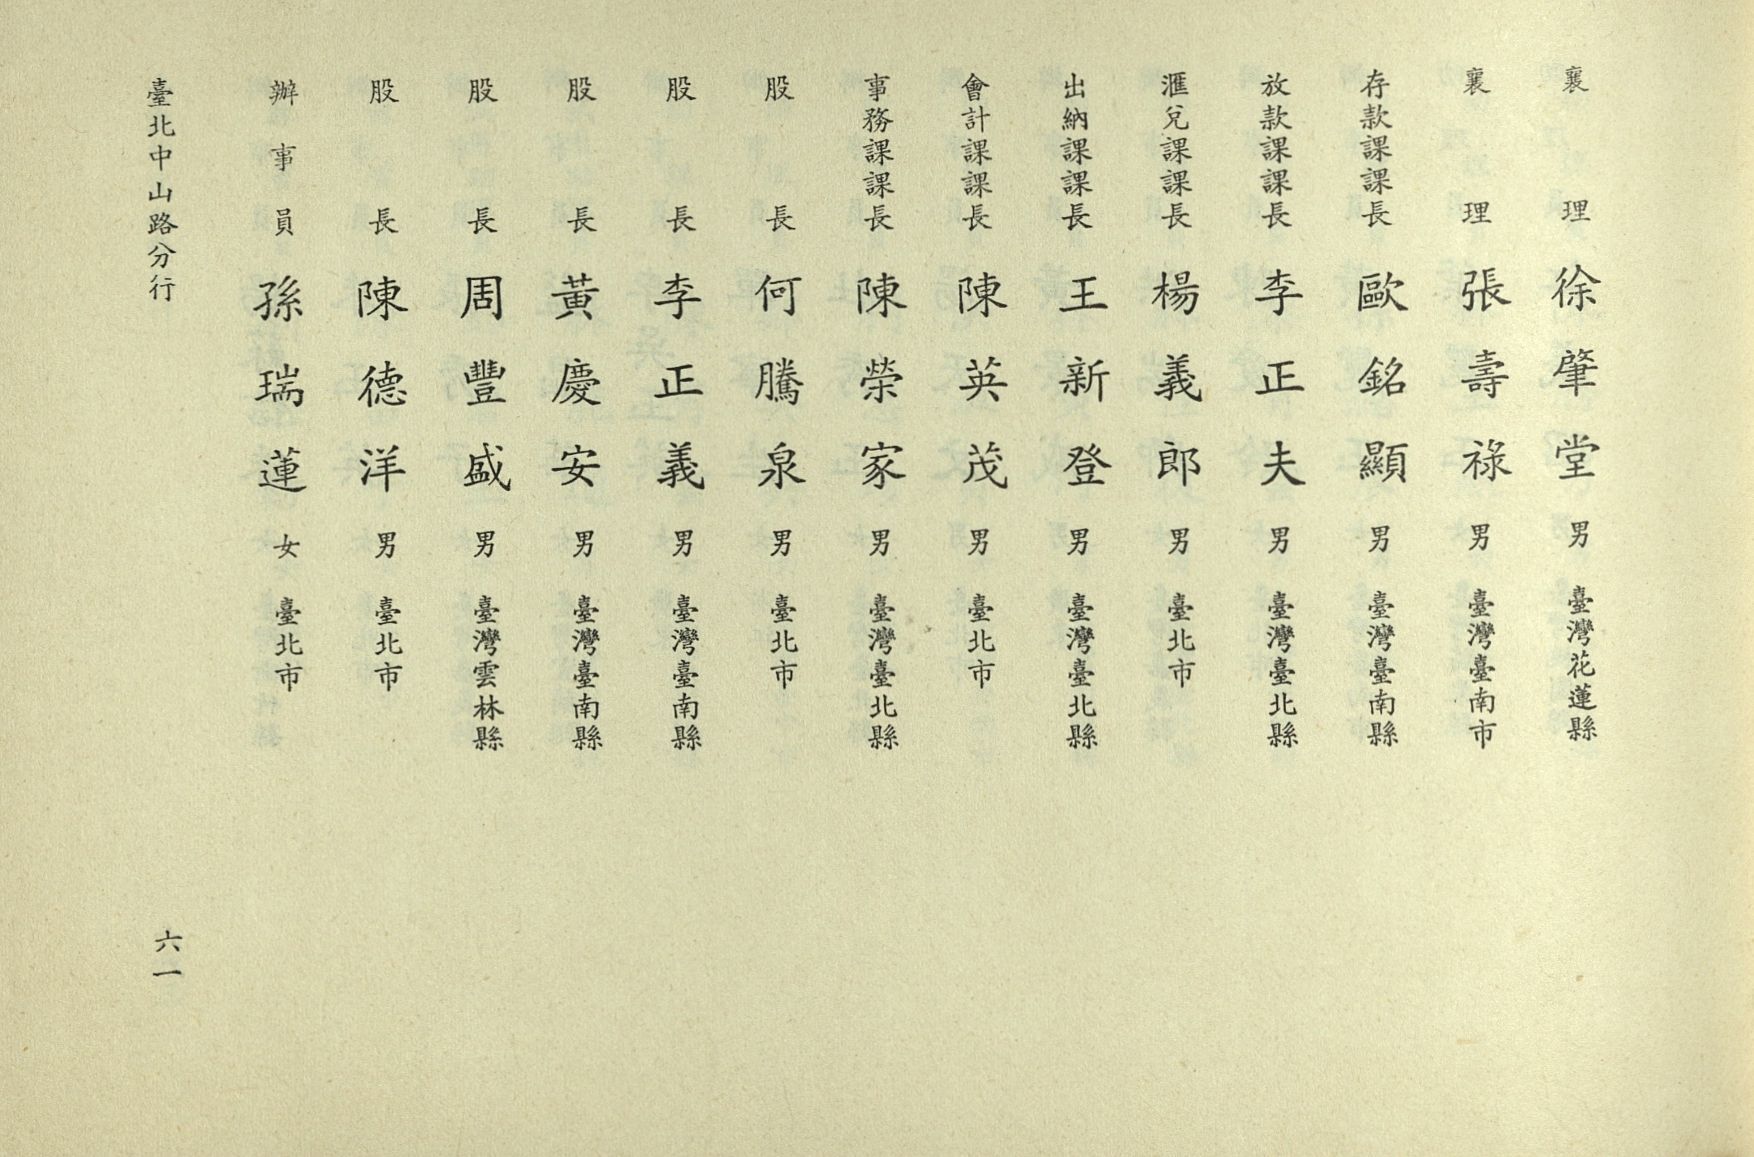 襄理 徐肇堂 男 臺灣花蓮縣
襄理 張壽祿 男 臺灣臺南市
存款課課長 歐銘顯 男 臺灣臺南縣
放款課課長 李正夫 男 臺灣臺北縣
滙兌課課長 楊義郎 男 臺北市
出納課課長 王新登 男 臺灣臺北縣
會計課課長 陳英茂 男 臺北市
事務課課長 陳榮家 男 臺灣臺北縣
股長 何騰泉 男 臺北市
股長 李正義 男 臺灣臺南縣
股長 黃慶安 男 臺灣臺南縣
股長 周豐盛 男 臺灣雲林縣
股長 陳德洋 男 臺北市
辦事員 孫瑞蓮 女 臺北市
臺北中山路分行
六一